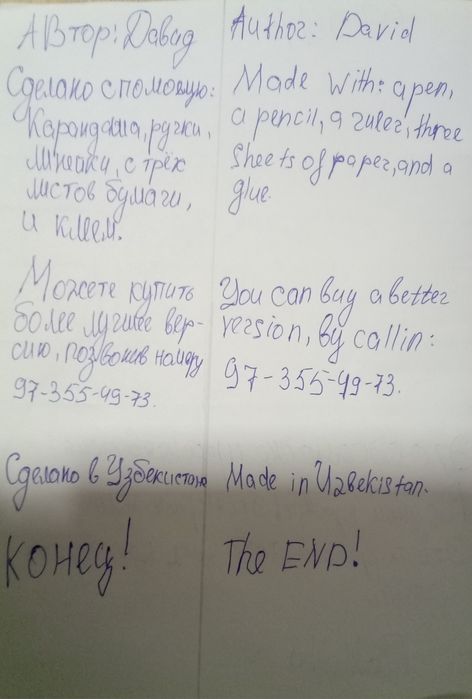 Автор: Давид
Сделано с помощью:
Карандаша, ручки,
линейки, с трёх
листов бумаги,
и клеем.
Можете купить
более лучшее вер-
сию, позвонив номеру
97-355-49-73.
Сделано в Узбекистане
КОНЕЦ!
Author: David
Made with: a pen,
a pencil, a ruler, three
sheets of paper, and a
glue.
You can buy a better
version, by callin:
97-355-49-73.
Made in Uzbekistan.
The END!